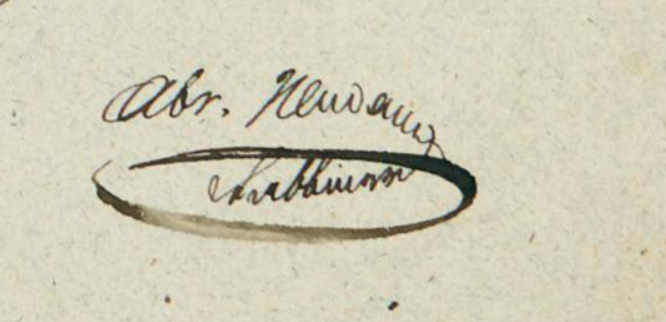 Abr. Neuda mp
Rabbiner